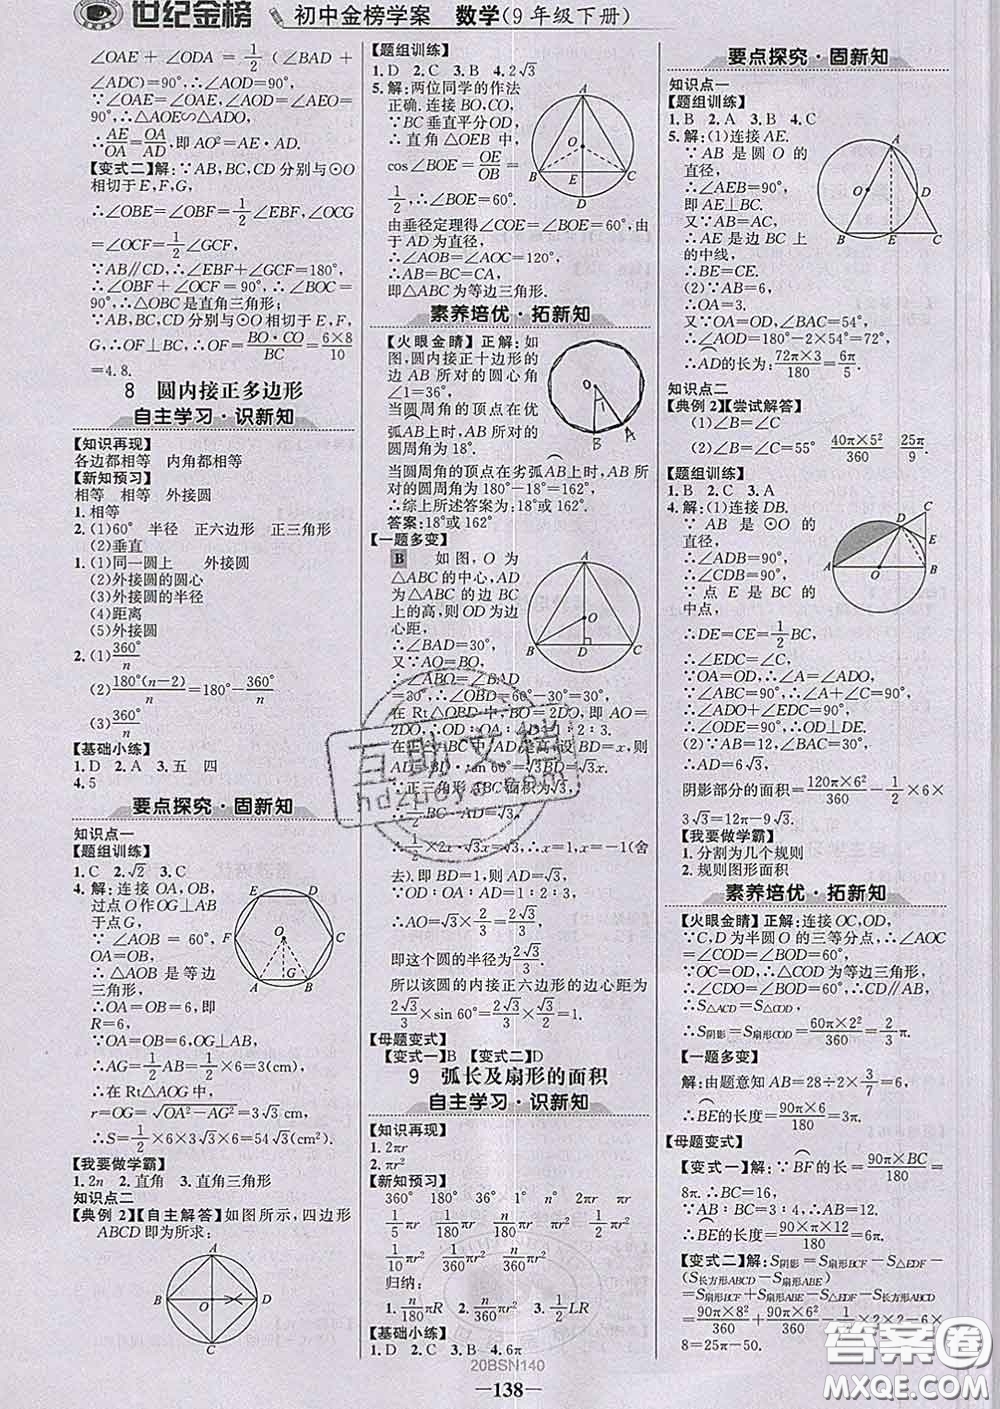 世纪金榜 初中金榜学案 数学(9年级下册)
∠OAE+∠ODA=1/2(∠BAD+
∠ADC)=90°,
∵∠OAE=∠OAE,∠AOD=∠AEO=
90°,∴△AOE∽△ADO,
∴AE/OA=OA/AD.即AO²=AE·AD.
【变式二】解:∵AB,BC,CD分别与⊙O
相切于E,F,G,
∴∠OBE=∠OBF=1/2∠EBF,∠OCG
=∠OCF=1/2∠GCF,
∵AB∥CD,∴∠EBF+∠GCF=180°,
∴∠OBF+∠OCF=90°,∴∠BOC=
90°,∴△OBC是直角三角形;
∵AB,BC,CD分别与⊙O相切于E,F,
G,∴OF⊥BC,∴OF=BO·CO/BC=6×8/10
=4.8.
8 圆内接正多边形
自主学习·识新知
【知识再现】
各边都相等 内角都相等
【新知预习】
相等 相等 外接圆
1.相等
2.(1)60° 半径 正六边形 正三角形
(2)垂直
1.(1)同一圆上 外接圆
(2)外接圆的圆心
(3)外接圆的半径
(4)距离
(5)外接圆
2.(1)360°/n
(2)180°(n-2)/n=180°-360°/n
(3)360°/n
【基础小练】
1.D 2.A 3.五 四
4.5
要点探究·固新知
知识点一
【题组训练】
1.C 2.√2 3.C
4.解:连接OA,OB,
过点O作OG⊥AB
于点G,
∵∠AOB=60°,
OA=OB,
∴△AOB是等边
三角形,
∴OA=OB=6,即
R=6,
∵OA=OB=6,OG⊥AB,
∴AG=1/2AB=1/2×6=3(cm),
∴在Rt△AOG中,
r=OG=√(OA²-AG²)=3√3 cm,
∴S=1/2×6×3√3×6=54√3(cm²).
【我要做学霸】
1.2n 2.直角 直角三角形
知识点二
【典例2】【自主解答】如图所示,四边形
ABCD即为所求:
【题组训练】
1.D 2.C 3.B 4.2√3
5.解:两位同学的作法
正确.连接BO,CO,
∵BC垂直平分OD,
∴直角△OEB中,
cos∠BOE=OE/OB=
1/2,∠BOE=60°.
由垂径定理得∠COE=∠BOE=60°,由
于AD为直径,
∴∠AOB=∠AOC=120°,
∴AB=BC=CA.
即△ABC为等边三角形.
素养培优·拓新知
【火眼金睛】正解:如
图,圆内接正十边形的
边AB所对的圆心角
∠1=36°,
当圆周角的顶点在优
弧AB上时,AB所对的
圆周角为18°.
当圆周角的顶点在劣弧AB上时,AB所
对的圆周角为180°-18°=162°,
∴综上所述答案为:18°或162°.
答案:18°或162°
【一题多变】
B 如图,O为
△ABC的中心,AD
为△ABC的BC边
上的高,则OD为边
心距,
∴∠BAD=30°,
又∵AO=BO,
∴∠ABO=∠BAD
=30°,∴∠OBD=60°-30°=30°,
在Rt△OBD中,BO=2DO,即AO=
2DO,∴OD∶OA∶AD=1∶2∶3.
∴1/2×2x·√3x=√3,∴x=1(舍
去).即BD=1,则AD=√3,
∵OD∶OA∶AD=1∶2∶3,
∴AO=√3×2/3=2√3/3,
即这个圆的半径为2√3/3.
所以该圆的内接正六边形的边心距为
2√3/3×sin 60°=2√3/3×√3/2=1.
【母题变式】
【变式一】B 【变式二】D
9 弧长及扇形的面积
自主学习·识新知
【知识再现】
1.2πr
2.πr²
【新知预习】
360° 180° 36° 1° n° 2πr πr
1/5πr 1/180πr n/180πr πr² 1/2πr²
1/10πr² 1/360πr² n/360πr²
归纳:
1.n/180πR 2.n/360πR² 3.1/2LR
【基础小练】
1.D 2.C 3.B 4.6π
要点探究·固新知
知识点一
【题组训练】
1.B 2.A 3.B 4.C
5.解:(1)连接AE.
∵AB是圆O的
直径,
∴∠AEB=90°,
即AE⊥BC.
又∵AB=AC,
∴AE是边BC上
的中线,
∴BE=CE.
(2)∵AB=6,
∴OA=3.
又∵OA=OD,∠BAC=54°,
∴∠AOD=180°-2×54°=72°,
∴AD的长为:72π×3/180=6π/5.
知识点二
【典例2】【尝试解答】
(1)∠B=∠C
(2)∠B=∠C=55° 40π×5²/360 25π/9.
【题组训练】
1.B 2.C 3.A
4.解:(1)连接DB.
∵AB是⊙O的
直径,
∴∠ADB=90°,
∴∠CDB=90°,
∵点E是BC的
中点,
∴DE=CE=1/2BC,
∴∠EDC=∠C,
∵OA=OD,∴∠A=∠ADO,
∵∠ABC=90°,∴∠A+∠C=90°,
∴∠ADO+∠EDC=90°,
∴∠ODE=90°,∴OD⊥DE.
∴AD=6√3,
阴影部分的面积=120π×6²/360-1/2×6×
3√3=12π-9√3.
【我要做学霸】
1.分割为几个规则
2.规则图形面积
素养培优·拓新知
【火眼金睛】正解:连接OC,OD,
∵C,D为半圆O的三等分点,∴∠AOC
=∠COD=∠BOD=60°,
∵OC=OD,∴△COD为等边三角形,
∴∠CDO=∠BOD=60°,∴CD∥AB,
∴S△ACD=S△COD,
∴S阴影=S扇形COD=60π×2²/360=2/3π.
【一题多变】
解:由题意知AB=28÷2×3/7=6,
∴BE的长度=90π×6/180=3π.
【母题变式】
【变式一】解:∵BF的长=90π×BC/180=
8π.∴BC=16,
∵AB∶BC=3∶4,∴AB=12,
∴BE的长度=90π×12/180=6π.
【变式二】解:∵S阴影=S扇形BCF-S△EDF-
(S长方形ABCD-S扇形ABE)
=S扇形BCF+S扇形ABE-S△EDF-S长方形ABCD
=90π×8²/360+90π×6²/360-1/2×2×2-6×
8=25π-50.
互助文档
hdzuoye.com
20BSN140
—138—
答案圈
MXQE.COM